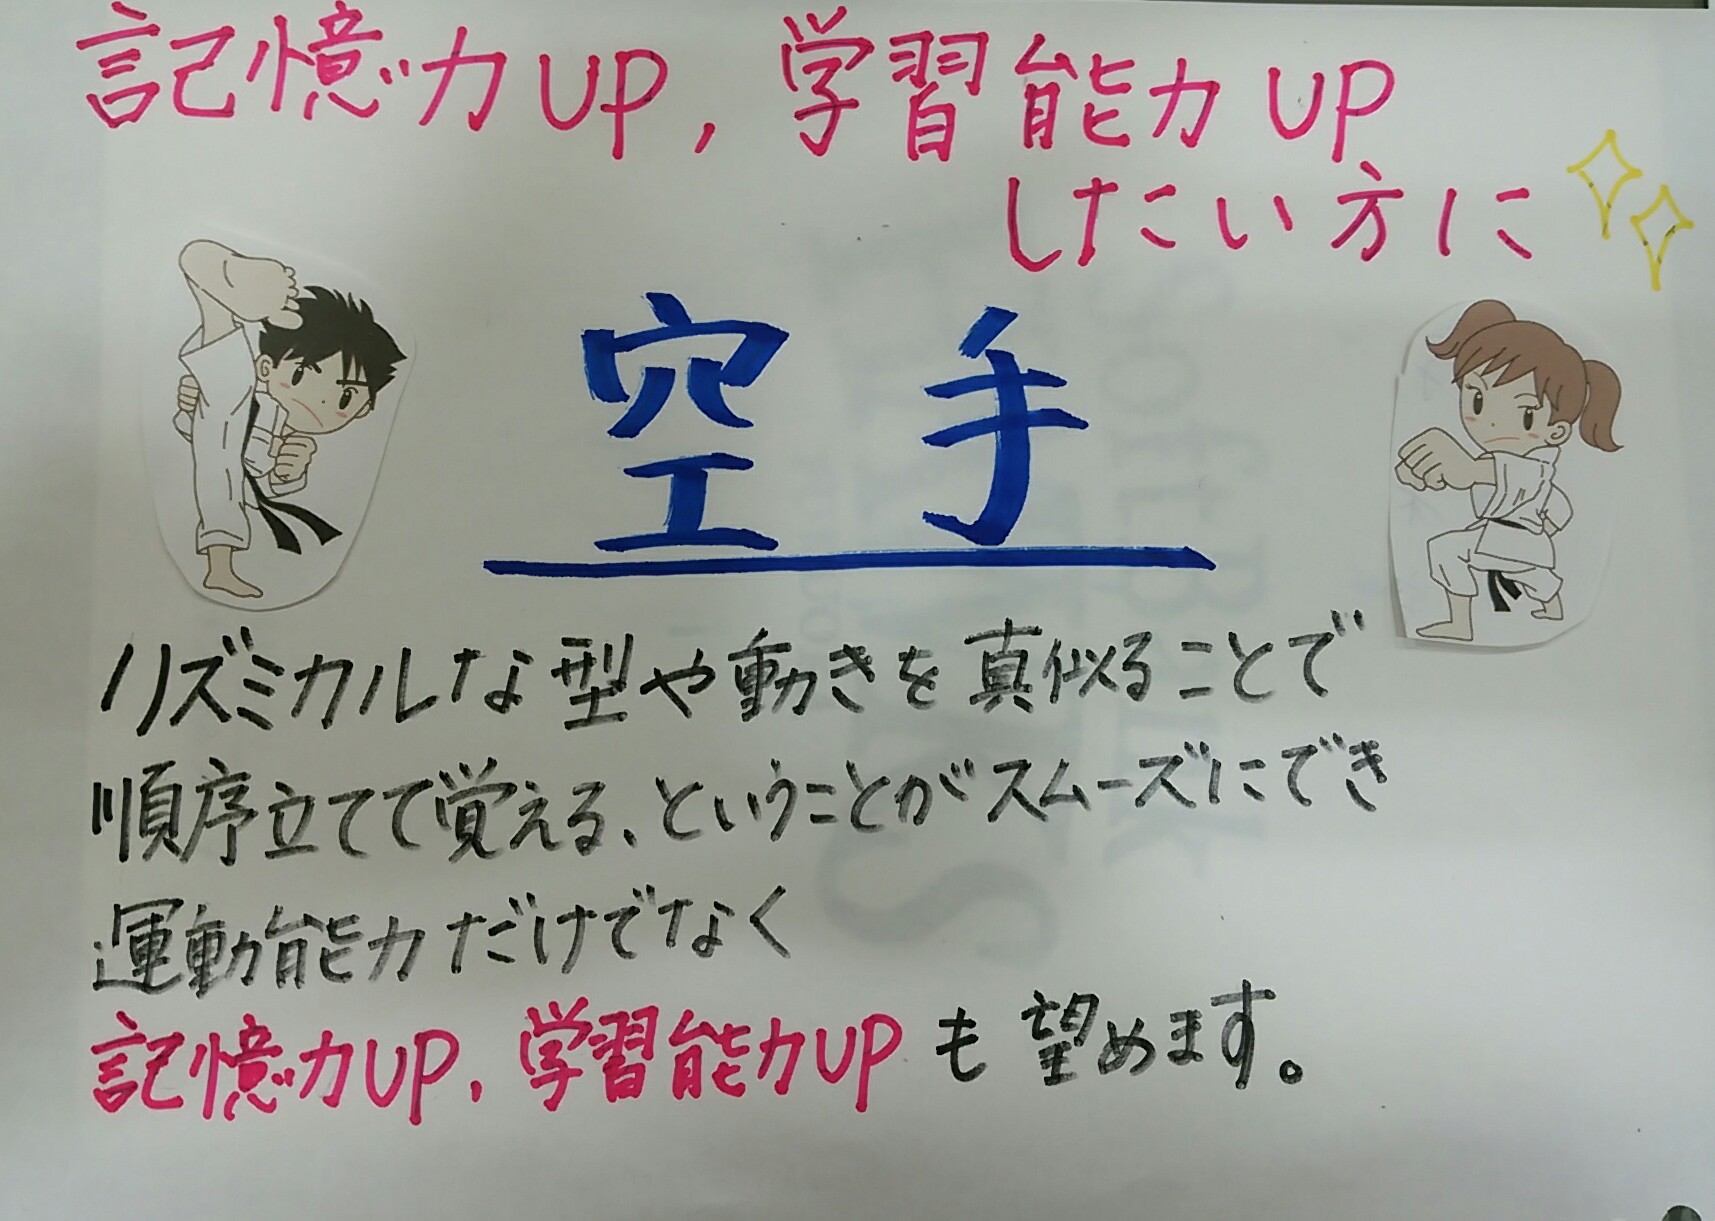 記憶力UP,学習能力UP
したい方に
空手
リズミカルな型や動きを真似ることで
順序立てて覚える、ということがスムーズにでき
運動能力だけでなく
記憶力UP,学習能力UPも望めます。